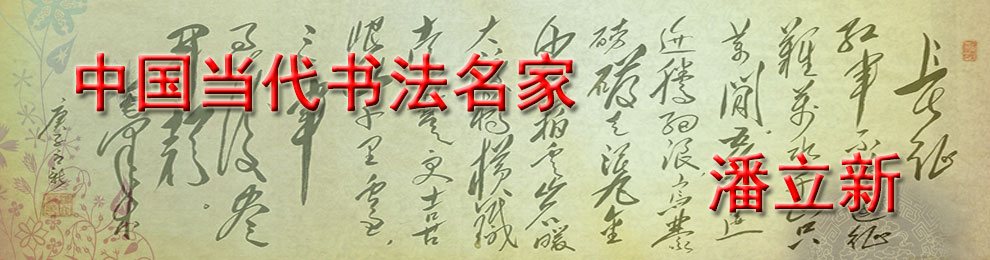 中国当代书法名家
潘立新
长征
红军不怕远征
難萬水千山只
等閒五岭逶
迤腾细浪乌蒙
磅礴走泥丸金
沙水拍云崖暖
大渡桥横铁
索寒更喜
岷山千里雪
三军
过後尽
开颜